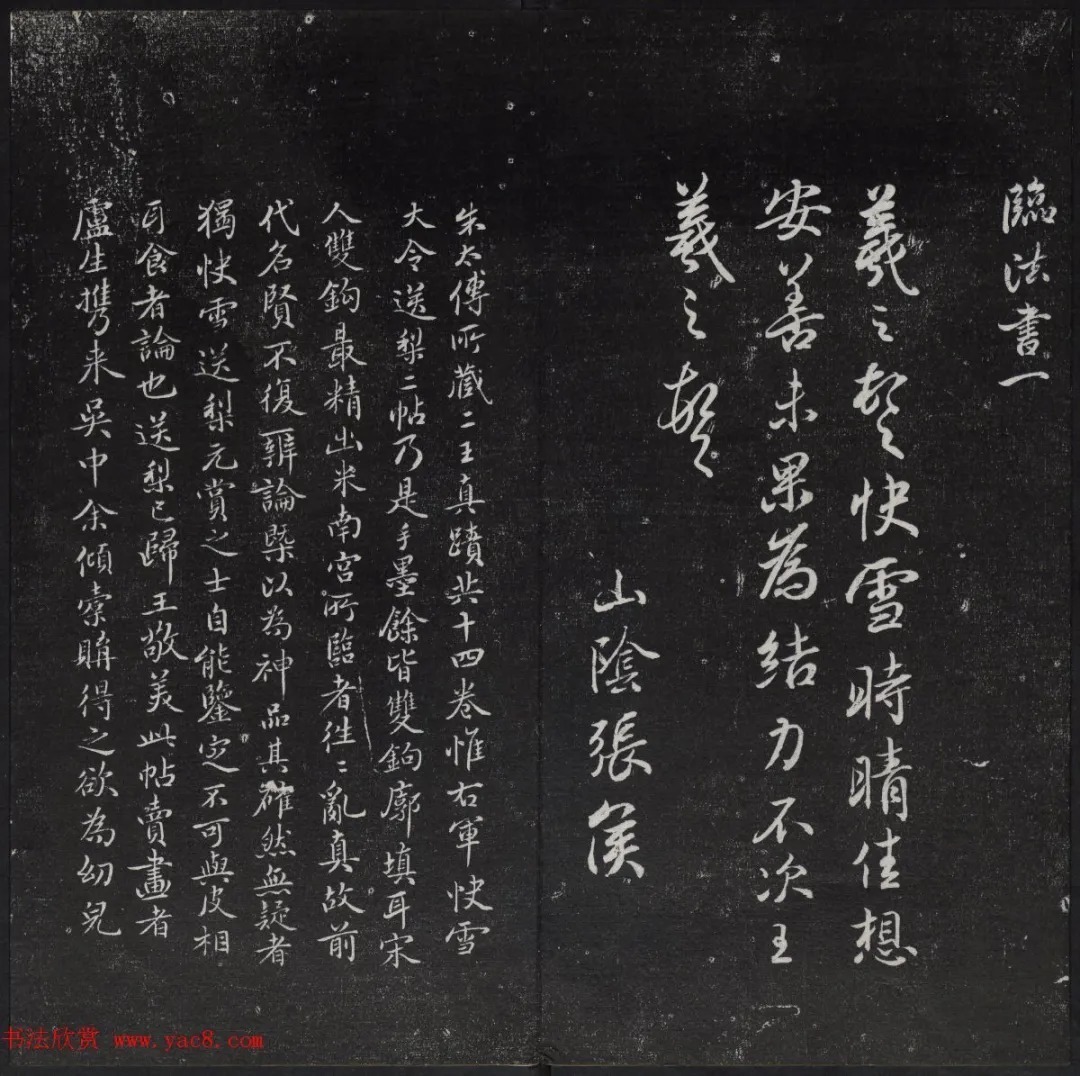 臨法書一
羲之頓首快雪時晴佳想
安善未果為結力不次王
羲之頓首
山陰張侯
朱太傅所藏二王真蹟共十四卷惟右軍快雪
大令送梨二帖乃是手墨餘皆雙鉤廓填耳宋
人雙鉤最精出米南宮所臨者往〻亂真故前
代名賢不復辨論槩以為神品其確然無疑者
獨快雪送梨元賞之士自能鑒定不可與皮相
耳食者論也送梨已歸王敬美此帖賣畫者
盧生攜来吳中余傾橐購得之欲為幼兒
书法欣赏 www.yac8.com